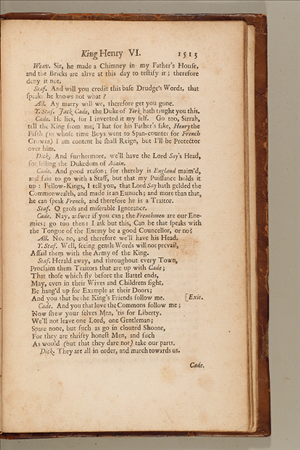 King Henry VI. 1513
Weav. Sir, he made a Chimney in my Father's House,
and the Bricks are alive at this day to testify it; therefore
deny it not.
Staf. And will you credit this base Drudge's Words, that
speaks he knows not what?
All. Ay marry will we, therefore get you gone.
Y. Staf. Jack Cade, the Duke of York hath taught you this.
Cade. He lies, for I invented it my self. Go too, Sirrah,
tell the King from me, That for his Father's sake, Henry the
Fifth (in whose time Boys went to Span-counter for French
Crowns) I am content he shall Reign, but I'll be Protector
over him.
Dick. And furthermore, we'll have the Lord Say's Head,
for selling the Dukedom of Main.
Cade. And good reason; for thereby is England maim'd,
and fain to go with a Staff, but that my Puissance holds it
up: Fellow-Kings, I tell you, that Lord Say hath gelded the
Commonwealth, and made it an Eunuch; and more than that,
he can speak French, and therefore he is a Traitor.
Staf. O gross and miserable Ignorance.
Cade. Nay, answer if you can; the Frenchmen are our Ene-
mies; go too then; I ask but this, Can he that speaks with
the Tongue of the Enemy be a good Councellor, or no?
All. No, no, and therefore we'll have his Head.
Y. Staf. Well, seeing gentle Words will not prevail,
Assail them with the Army of the King.
Staf. Herald away, and throughout every Town,
Proclaim them Traitors that are up with Cade;
That those which fly before the Battel ends,
May, even in their Wives and Childrens sight,
Be hang'd up for Example at their Doors;
And you that be the King's Friends follow me. [Exit.
Cade. And you that love the Commons follow me;
Now shew your selves Men, 'tis for Liberty.
We'll not leave one Lord, one Gentleman;
Spare none, but such as go in clouted Shoone,
For they are thrifty honest Men, and such
As would (but that they dare not) take our parts.
Dick. They are all in order, and march towards us.
Cade.